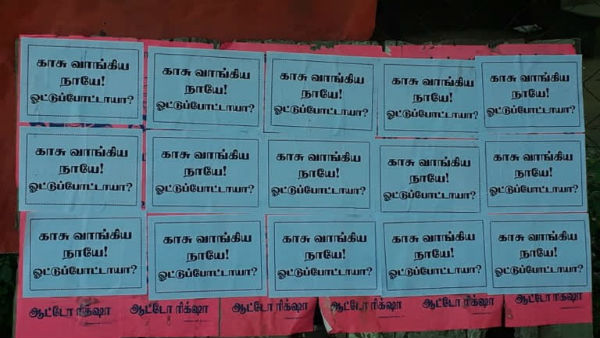 காசு வாங்கிய காசு வாங்கிய காசு வாங்கிய காசு வாங்கிய காசு வாங்கிய
நாயே! நாயே! நாயே! நாயே! நாயே!
ஓட்டுப்போட்டாயா? ஓட்டுப்போட்டாயா? ஓட்டுப்போட்டாயா? ஓட்டுப்போட்டாயா? ஓட்டுப்போட்டாயா?
காசு வாங்கிய காசு வாங்கிய காசு வாங்கிய காசு வாங்கிய காசு வாங்கிய
நாயே! நாயே! நாயே! நாயே! நாயே!
ஓட்டுப்போட்டாயா? ஓட்டுப்போட்டாயா? ஓட்டுப்போட்டாயா? ஓட்டுப்போட்டாயா? ஓட்டுப்போட்டாயா?
காசு வாங்கிய காசு வாங்கிய காசு வாங்கிய காசு வாங்கிய காசு வாங்கிய
நாயே! நாயே! நாயே! நாயே! நாயே!
ஓட்டுப்போட்டாயா? ஓட்டுப்போட்டாயா? ஓட்டுப்போட்டாயா? ஓட்டுப்போட்டாயா? ஓட்டுப்போட்டாயா?
ஆட்டோ ரிக்‌ஷா ஆட்டோ ரிக்‌ஷா ஆட்டோ ரிக்‌ஷா ஆட்டோ ரிக்‌ஷா ஆட்டோ ரிக்‌ஷா ஆட்டோ ரிக்‌ஷா